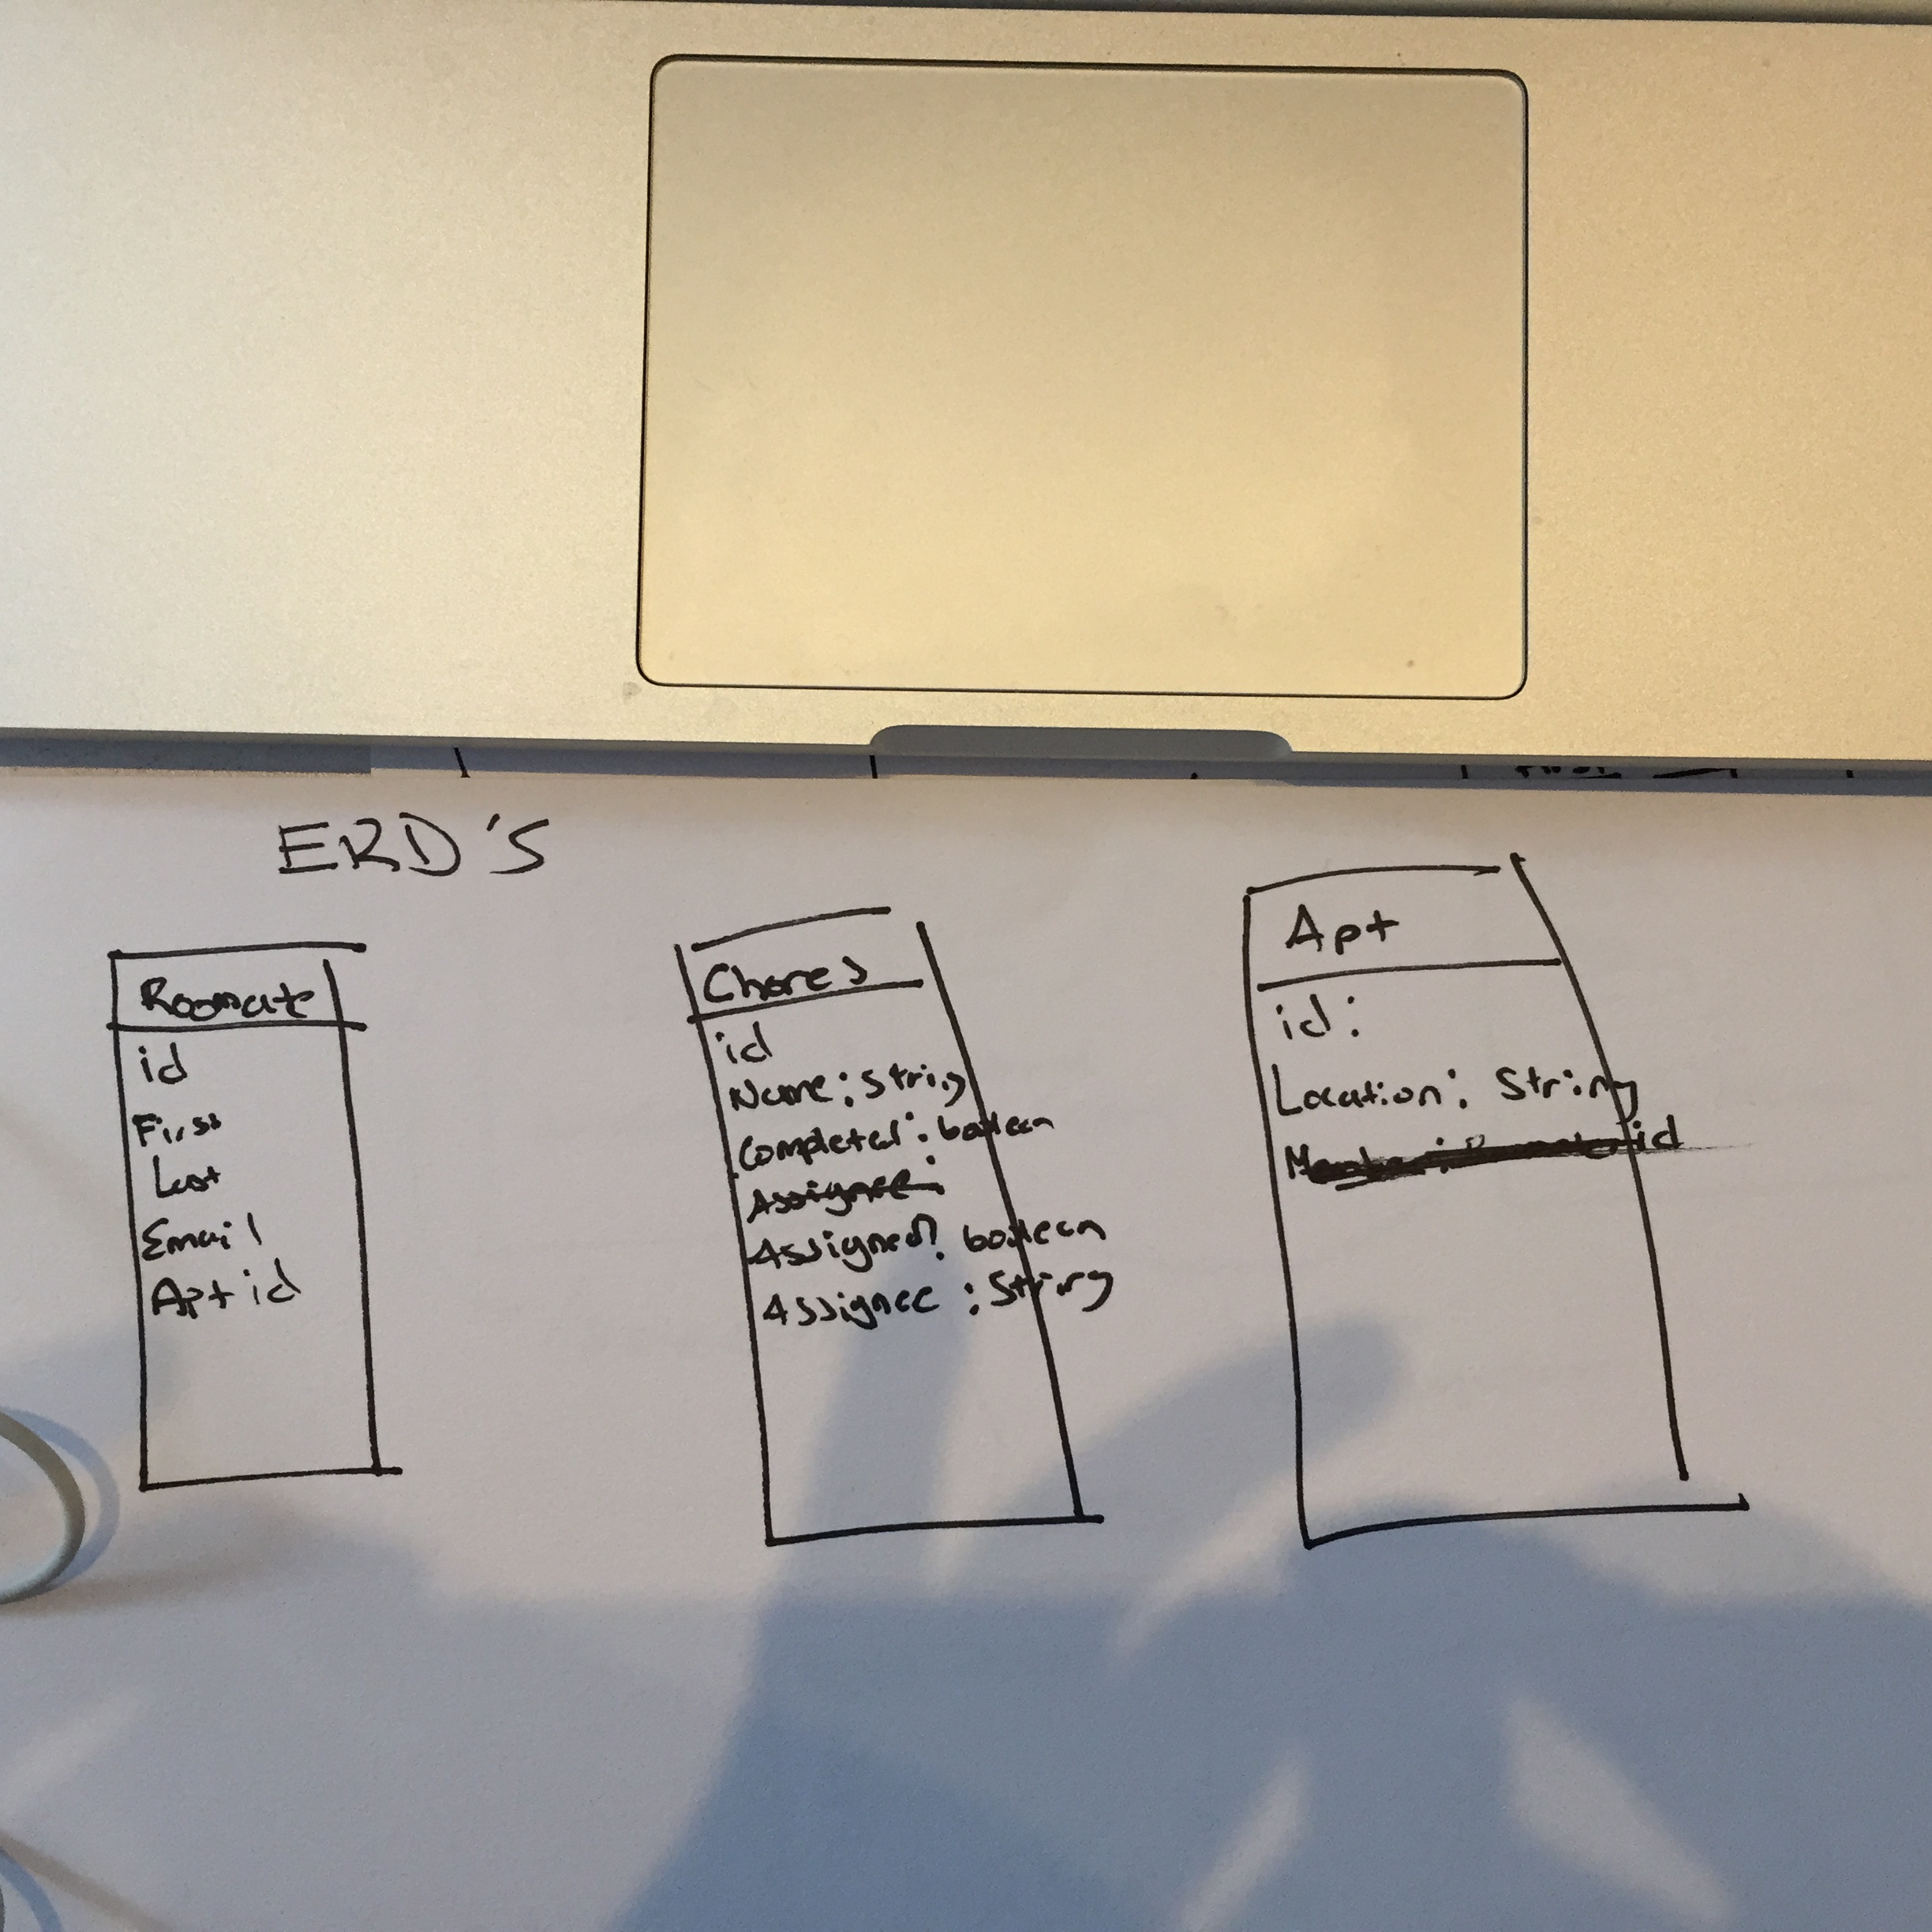 ERD's
Roomate
id
First
Last
Email
Apt id
Chores
id
Name: String
Completed: boolean
Assignee:
Assigned? boolean
Assignee : String
Apt
id:
Location: String
id